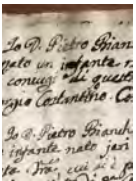 Io D. Pietro Bian
nato un infante
coniugi di quest
Costantino. Co
Io D. Pietro Bianch
infante nato jeri
cui si è